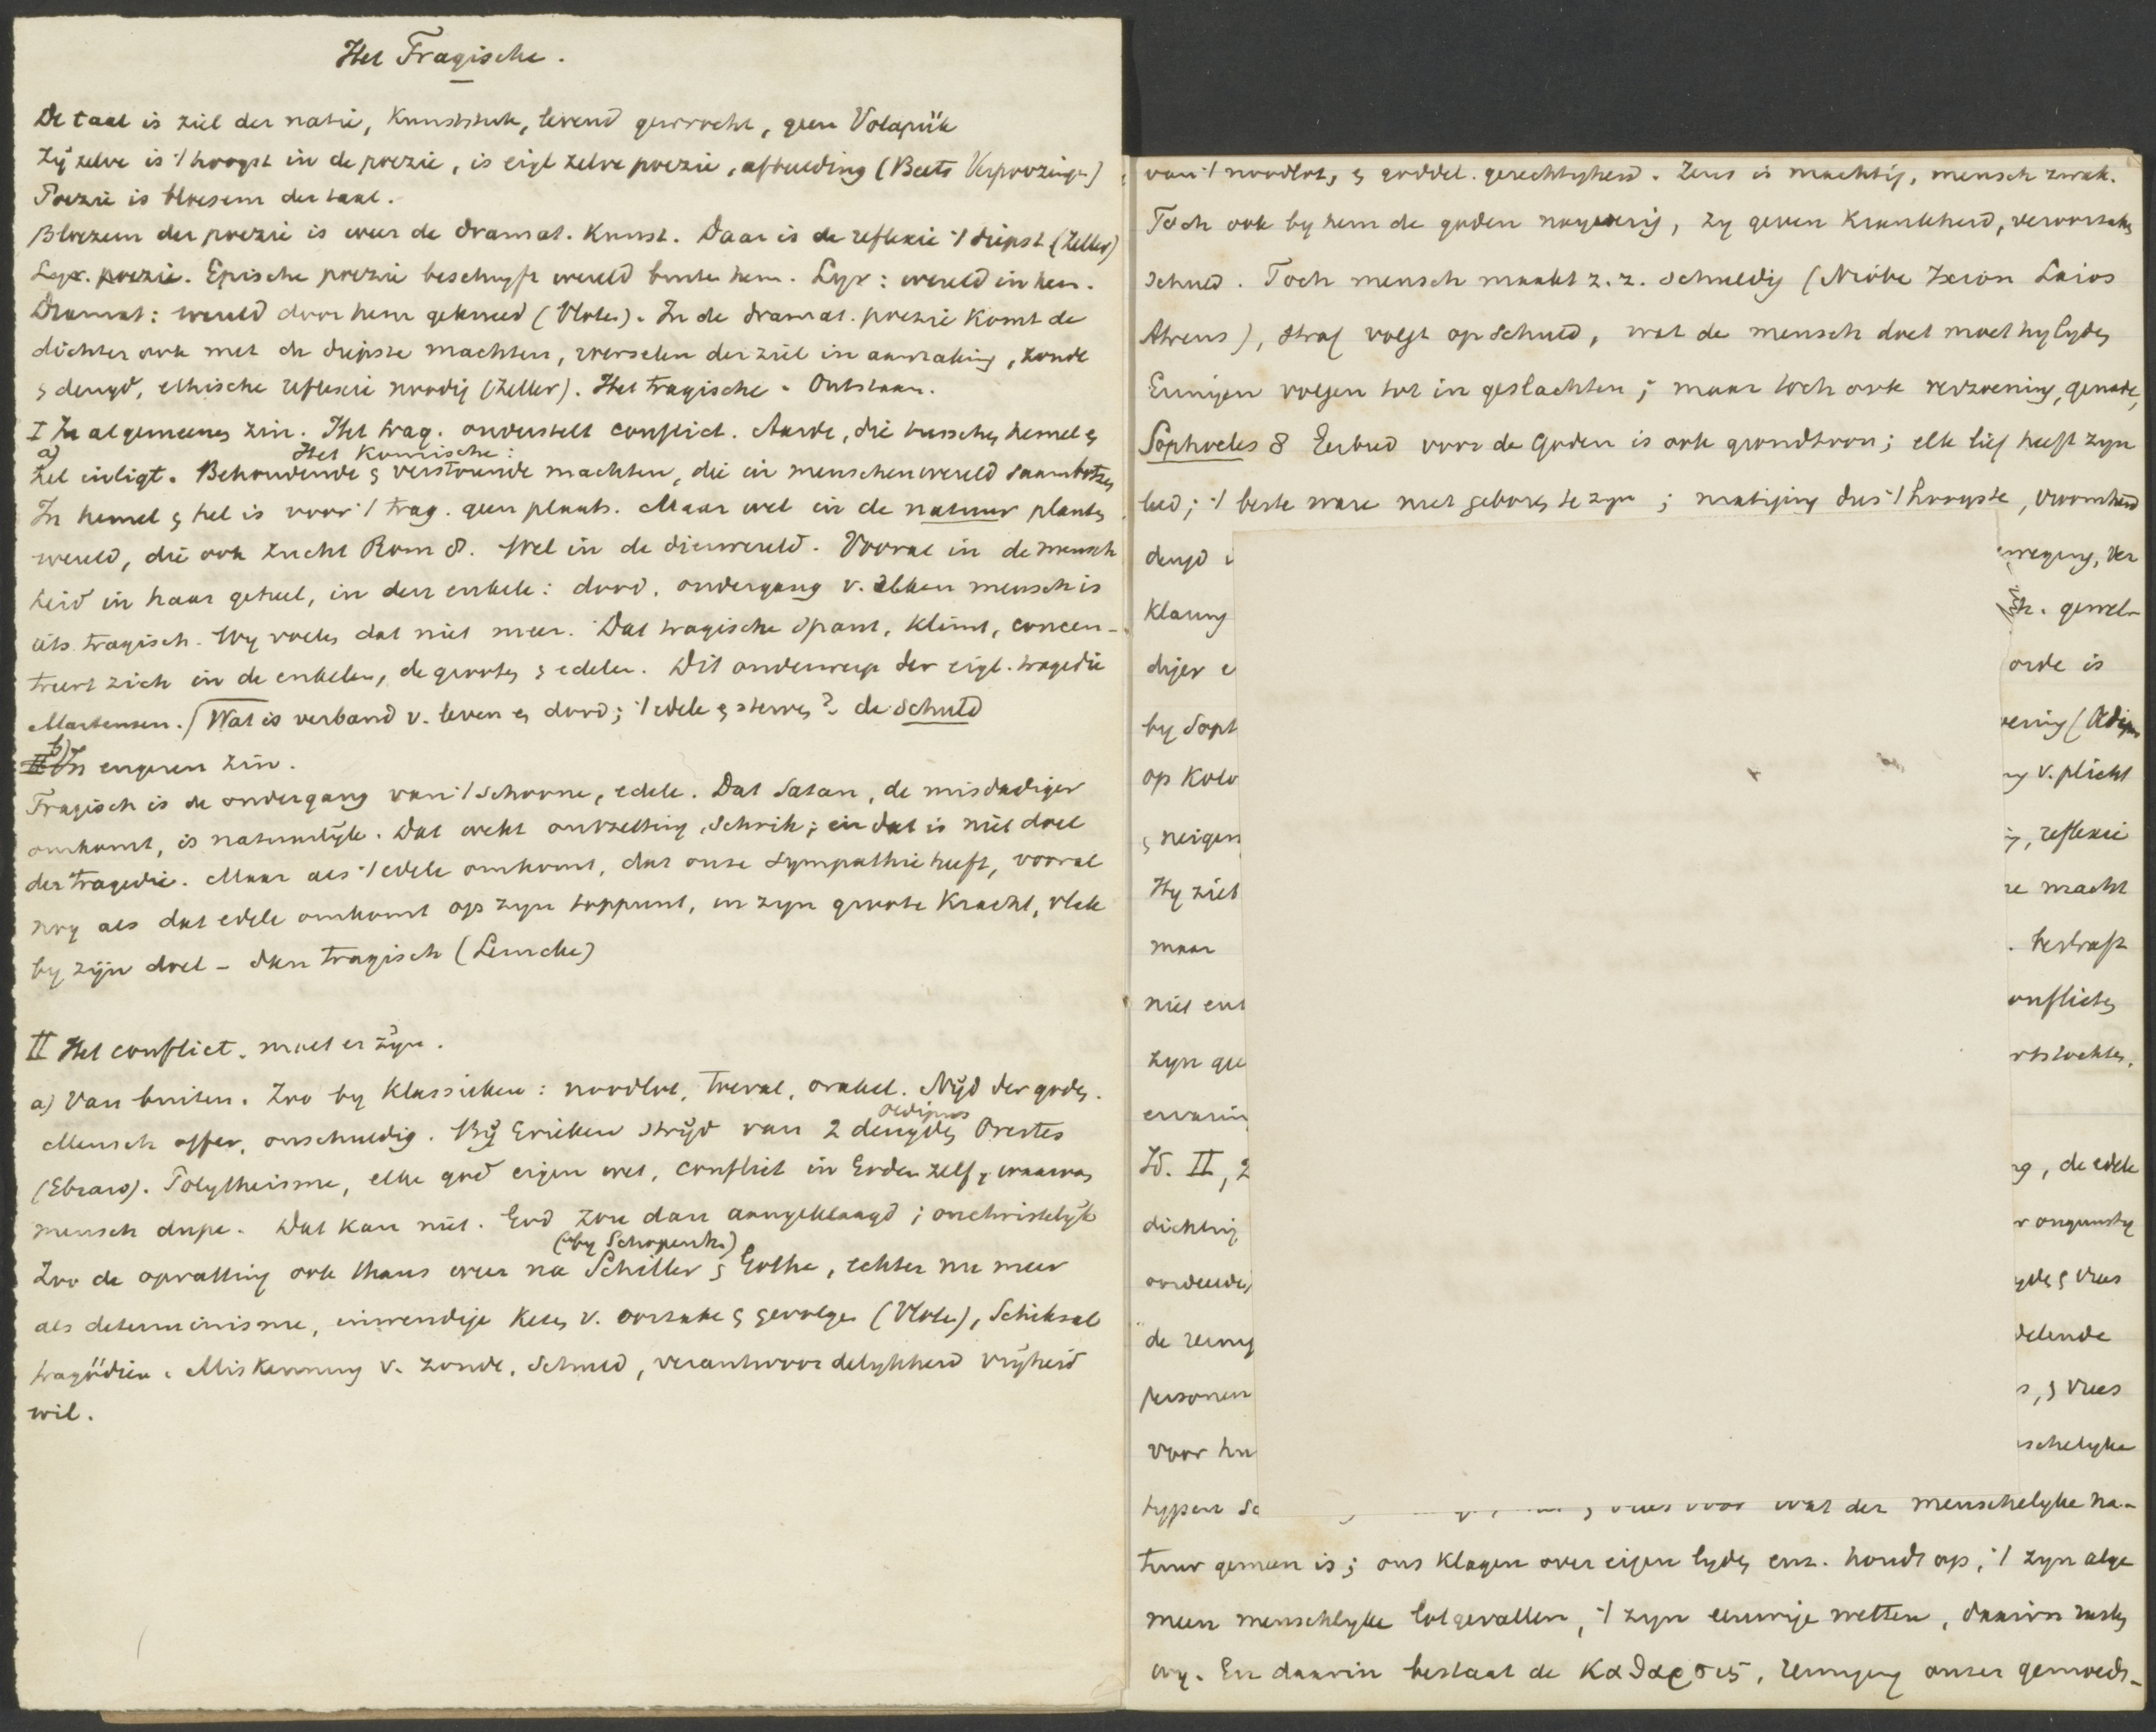 Het Tragische.
De taal is ziel der natie, Kunststuk, levend gewrocht, geen Volapük
Zij zelve is 't hoogst in de poezie, is eigl zelve poezie, afbeelding (Beets Verpoozingn)
Poezie is bloesem der taal.
Bloezem der poezie is weer de dramat. Kunst. Daar is de reflexie 't diepst (Zeller)
Lyr. poezie. Epische poezie beschryft wereld buiten hem. Lyr: wereld in hem.
Dramat: wereld door hem gekneed (Vloten). In de dramat. poezie komt de
dichter ook met de diepste machten, worstelen der ziel in aanraking, zonde
& deugd, ethische reflexie noodig (Zeller). Het tragische. Ontstaan.
I In algemeenen zin. Het trag. onderstelt conflict. Aarde, die tusschen hemel &
a) Het Komische:
hel inligt. Behoudende & verstoorende machten, die in menschenwereld saambotsen
In hemel & hel is voor 't trag. geen plaats. Maar wel in de natuur planten
wereld, die ook zucht Rom 8. Wel in de dierwereld. Vooral in de mensch
heid in haar geheel, in den enkele: dood, ondergang v. elken mensch is
iets tragisch. Wy voelen dat niet meer. Dat tragische spant, klimt, concen-
treert zich in de enkelen, de grooten & edelen. Dit onderwerp der eigl. tragedie
Martensen. Wat is verband v. leven en dood; 't edele & sterven? de schuld
b) In engeren zin.
Tragisch is de ondergang van 't schoone, edele. Dat Satan, de misdadiger
omkomt, is natuurlyk. Dat wekt ontzetting, schrik; en dat is niet doel
der tragedie. Maar als 't edele omkomt, dat onze sympathie heeft, vooral
nog als dat edele omkomt op zyn toppunt, in zyn groote Kracht, vlak
by zijn doel - dan tragisch (Lemcke)
II Het conflict. moet er zijn.
a) Van buiten. Zoo by Klassieken: noodlot, toeval, orakel. Nijd der goden.
Oedipus
Mensch offer, onschuldig. Bij Grieken strijd van 2 deugden Orestes
(Ebrard). Polytheisme, elke god eigen wet, conflict in Goden zelf, waarvan
mensch dupe. Dat kan niet. God zou dan aangeklaagd; onchristelijk
(by Schopenh.)
Zoo de opvatting ook thans weer na Schiller & Göthe, echter nu meer
als determinisme, inwendige keten v. oorzaken & gevolgen (Vloten), Schiksal
tragödien. Miskenning v. zonde, schuld, verantwoordelykheid vrijheid
wil.
van 't noodlot, & goddel. gerechtigheid. Zeus is machtig, mensch zwak.
Toch ook by hem de goden nayverig, zy geven krankheid, veroorzaken
schuld. Toch mensch maakt z. z. schuldig (Niobe Ixion Laios
Atreus), straf volgt op schuld, wat de mensch doet moet hy lyden
Erinyen volgen tot in geslachten; maar toch ook verzoening, genade,
Sophocles 8 Eerbied voor de Goden is ook grondtoon; elk lief heeft zyn
leed; 't beste ware niet geboren te zyn; matiging dus 't hoogste, vroomheid
deugd
weging, ver
klaring
gewel-
diger
orde is
by Soph
ening (Oedipus
op Kolo
v. plicht
& neigen
, reflexie
Hy ziet
re macht
maar
. bestraft
niet
onflicten
zyn
rtstochten,
ervarin
Id. II, 2
, de edele
dichtin
r ongunstig
& vrees
de reinig
delende
personen
, & vrees
voor hu
schelyke
typen
& vrees voor wat der menschelyke na-
tuur gemeen is; ons klagen over eigen lyden enz. houdt op, 't zyn alge
meen menschlyke lotgevallen, 't zyn eeuwige wetten, daarin rusten
wy. En daarin bestaat de Καθαρσις, reiniging onzer gemoeds-